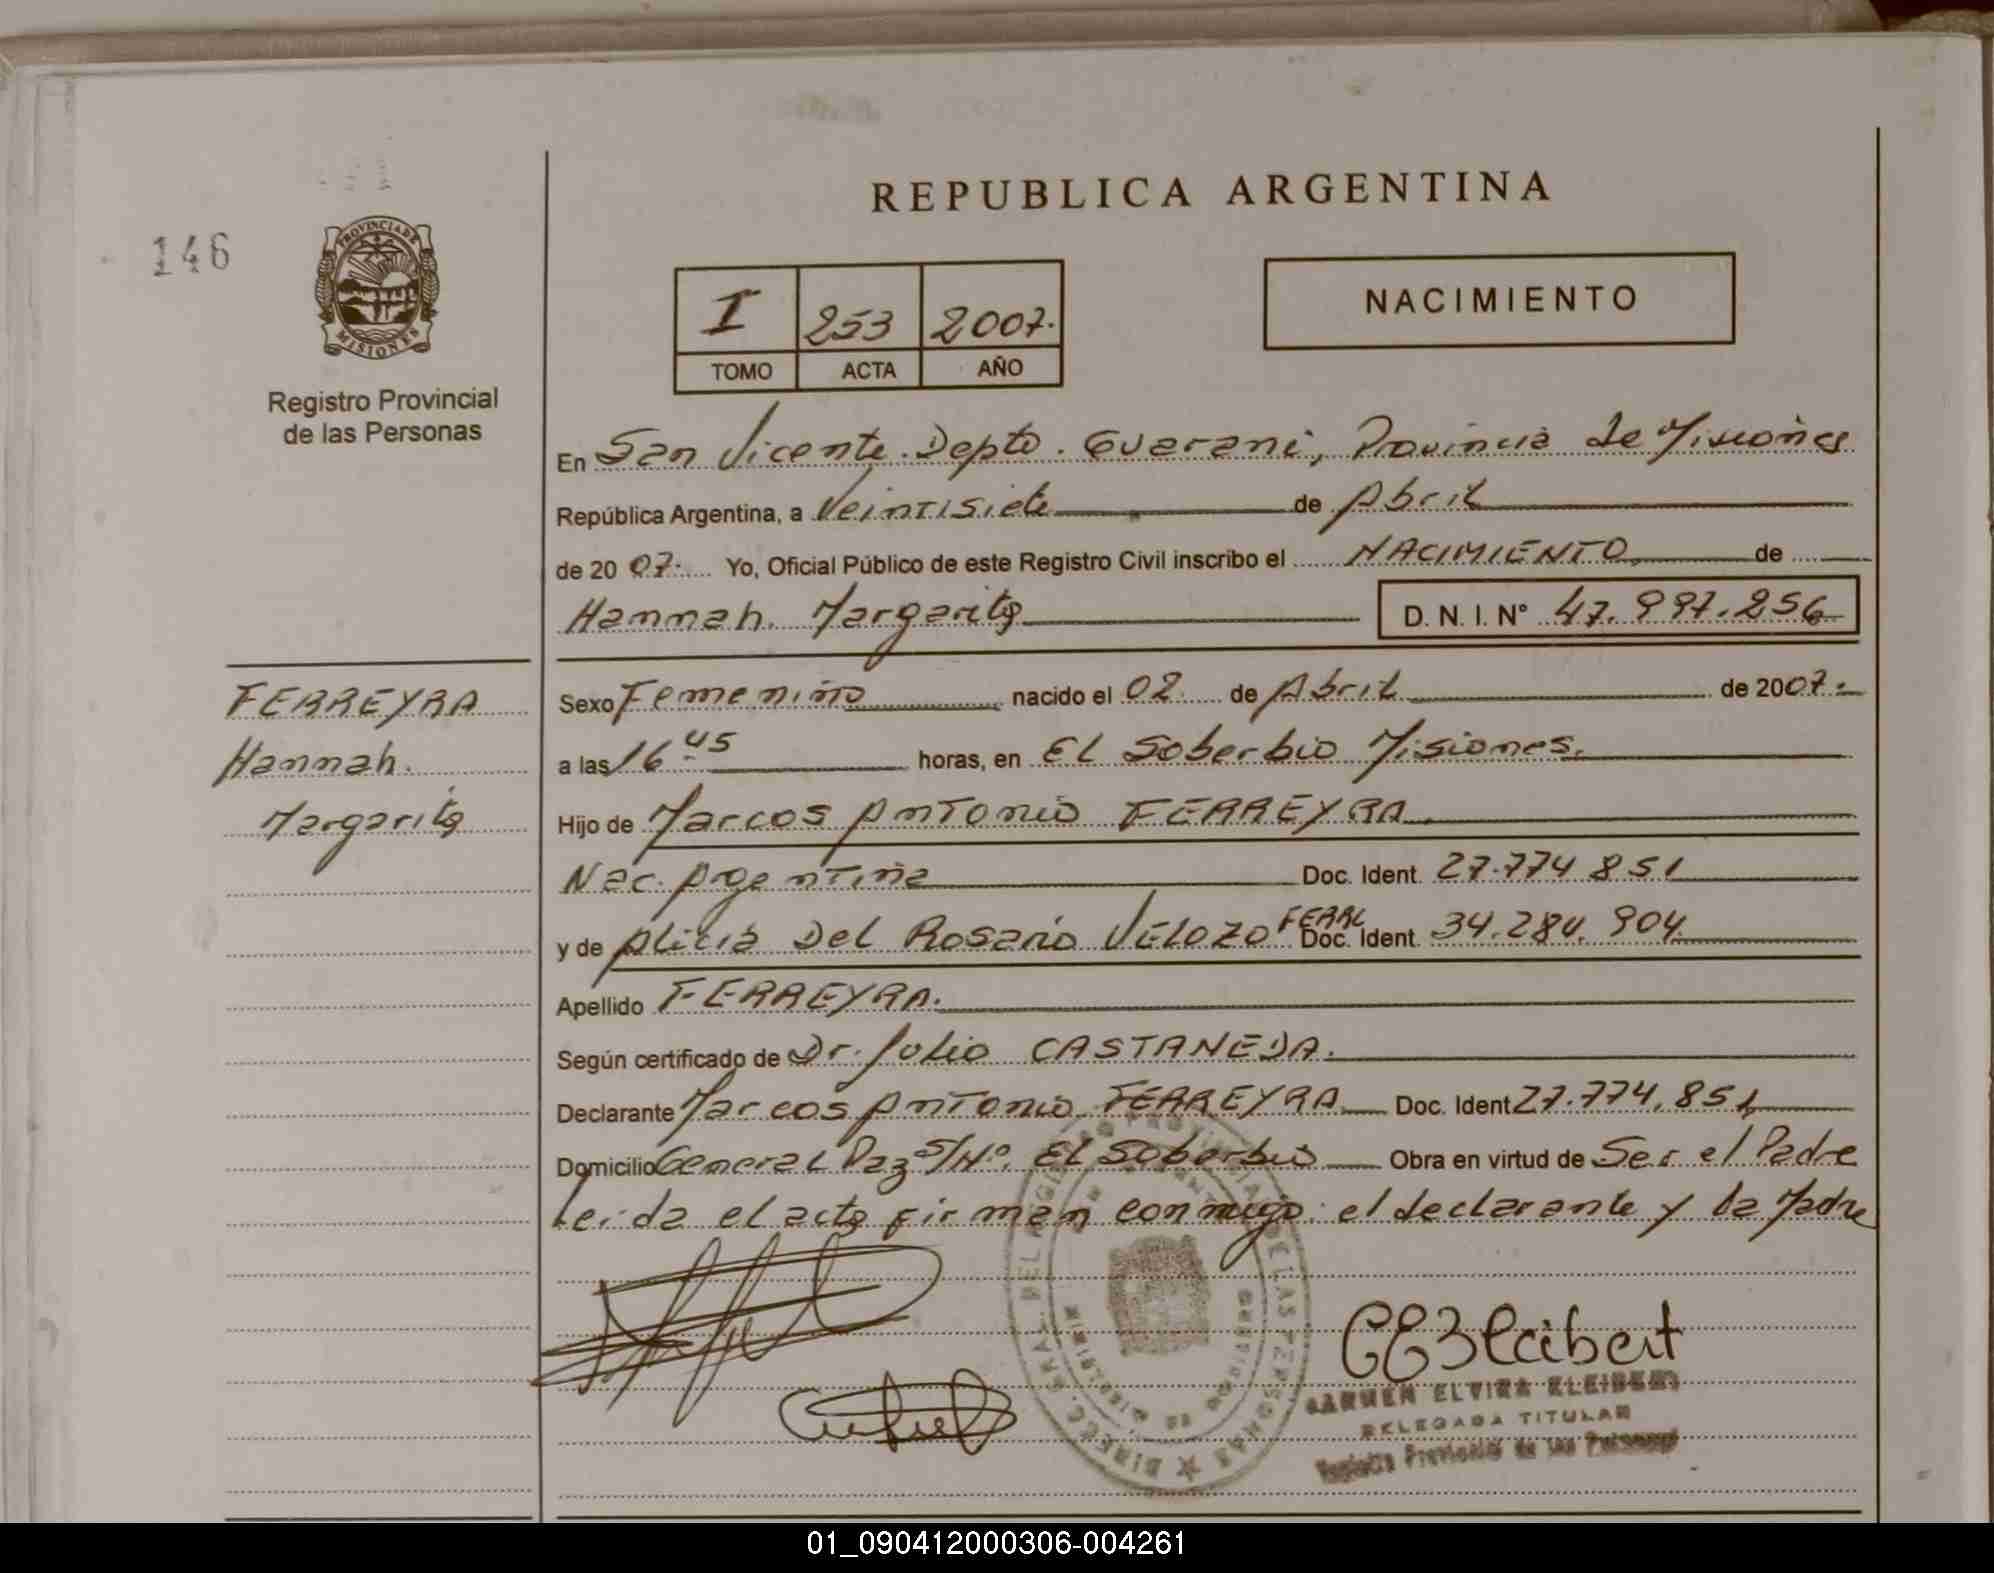 REPUBLICA ARGENTINA
146
PROVINCIA DE
MISIONES
Registro Provincial
de las Personas
I 253 2007.
TOMO ACTA AÑO
NACIMIENTO
En San Vicente. Depto. Guarani, Provincia de Misiones
República Argentina, a Veintisiete de Abril
de 2007. Yo, Oficial Público de este Registro Civil inscribo el NACIMIENTO de
Hannah. Margarita D. N. I. N° 47.997.256
FERREYRA
Hannah.
Margarita
Sexo Femenino nacido el 02. de Abril de 2007.
a las 16 45 horas, en El Soberbio Misiones.
Hijo de Marcos Antonio FERREYRA
Nac. Argentina Doc. Ident. 27.774 851
y de Alicia Del Rosario VELOZO Doc. Ident. 34.284.904
Apellido FERREYRA.
Según certificado de Dr. Julio CASTANEDA.
Declarante Marcos Antonio FERREYRA Doc. Ident 27.774.851
Domicilio General Paz S/Nº. El Soberbio Obra en virtud de Ser el Padre
Leida el acta firman conmigo: el declarante y la Madre
DIREC. GRAL. DEL REGISTRO PROVINCIAL DE LAS PERSONAS
CEKleibert
CARMEN ELVIRA KLEIBERT
DELEGADA TITULAR
Registro Provincial de las Personas
01_090412000306-004261